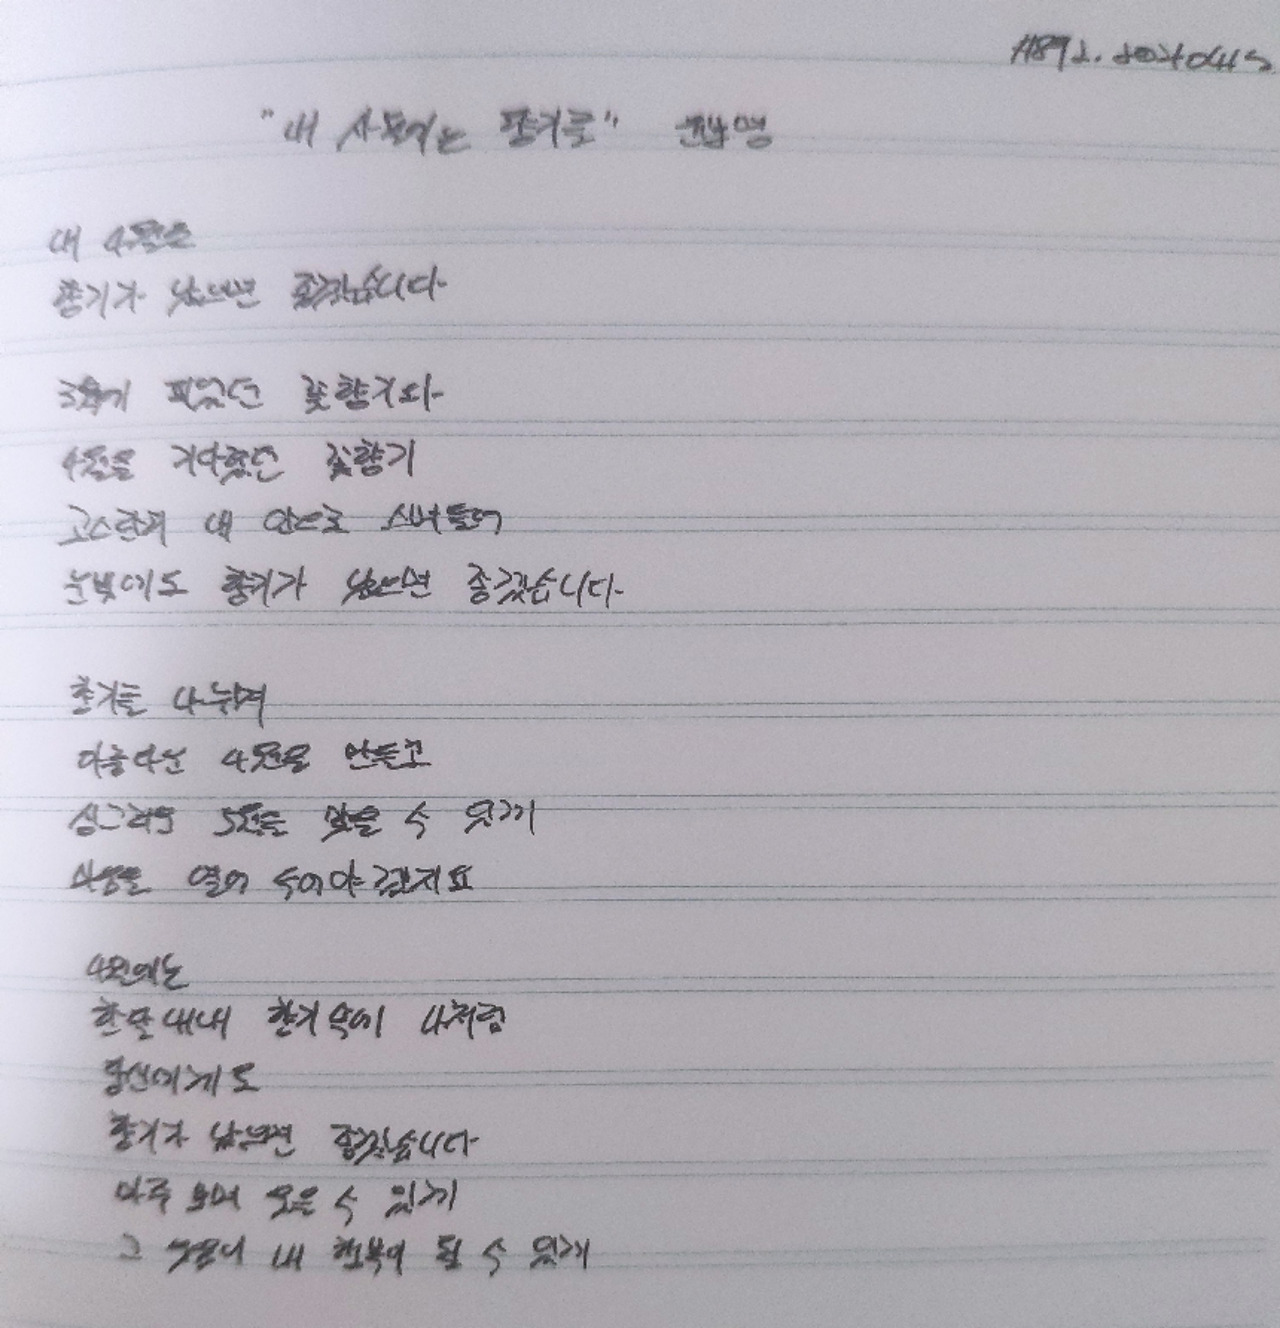 "내 사월에는 향기를" 윤보영
내 4월은
향기가 났으면 좋겠습니다
3월에 피었던 꽃향기와
4월을 기다렸던 꽃향기
고스란히 내 안으로 스며들어
눈빛에도 향기가 났으면 좋겠습니다
향기를 나누며
아름다운 4월을 만들고
싱그러운 5월을 맞을 수 있게
마음을 열어 두어야겠지요
4월에는
한달 내내 향기 속의 나처럼
당신에게도
향기가 났으면 좋겠습니다
마주 보며 웃을 수 있게
그 웃음이 내 행복이 될 수 있게